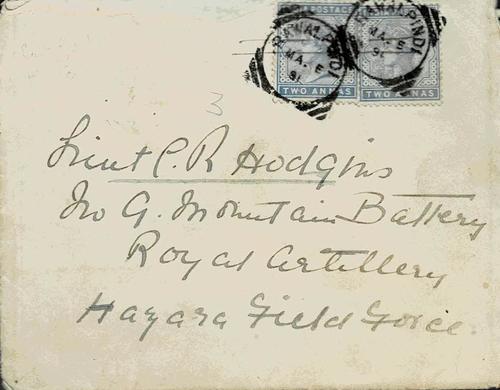 POSTAGE
RAWALPINDI
MA. 6
91
RAWALPINDI
MA. 6
91
TWO ANNAS
TWO ANNAS
3
Lieut C. R Hodgins
No 9. Mountain Battery
Royal Artillery
Hazara Field Force.